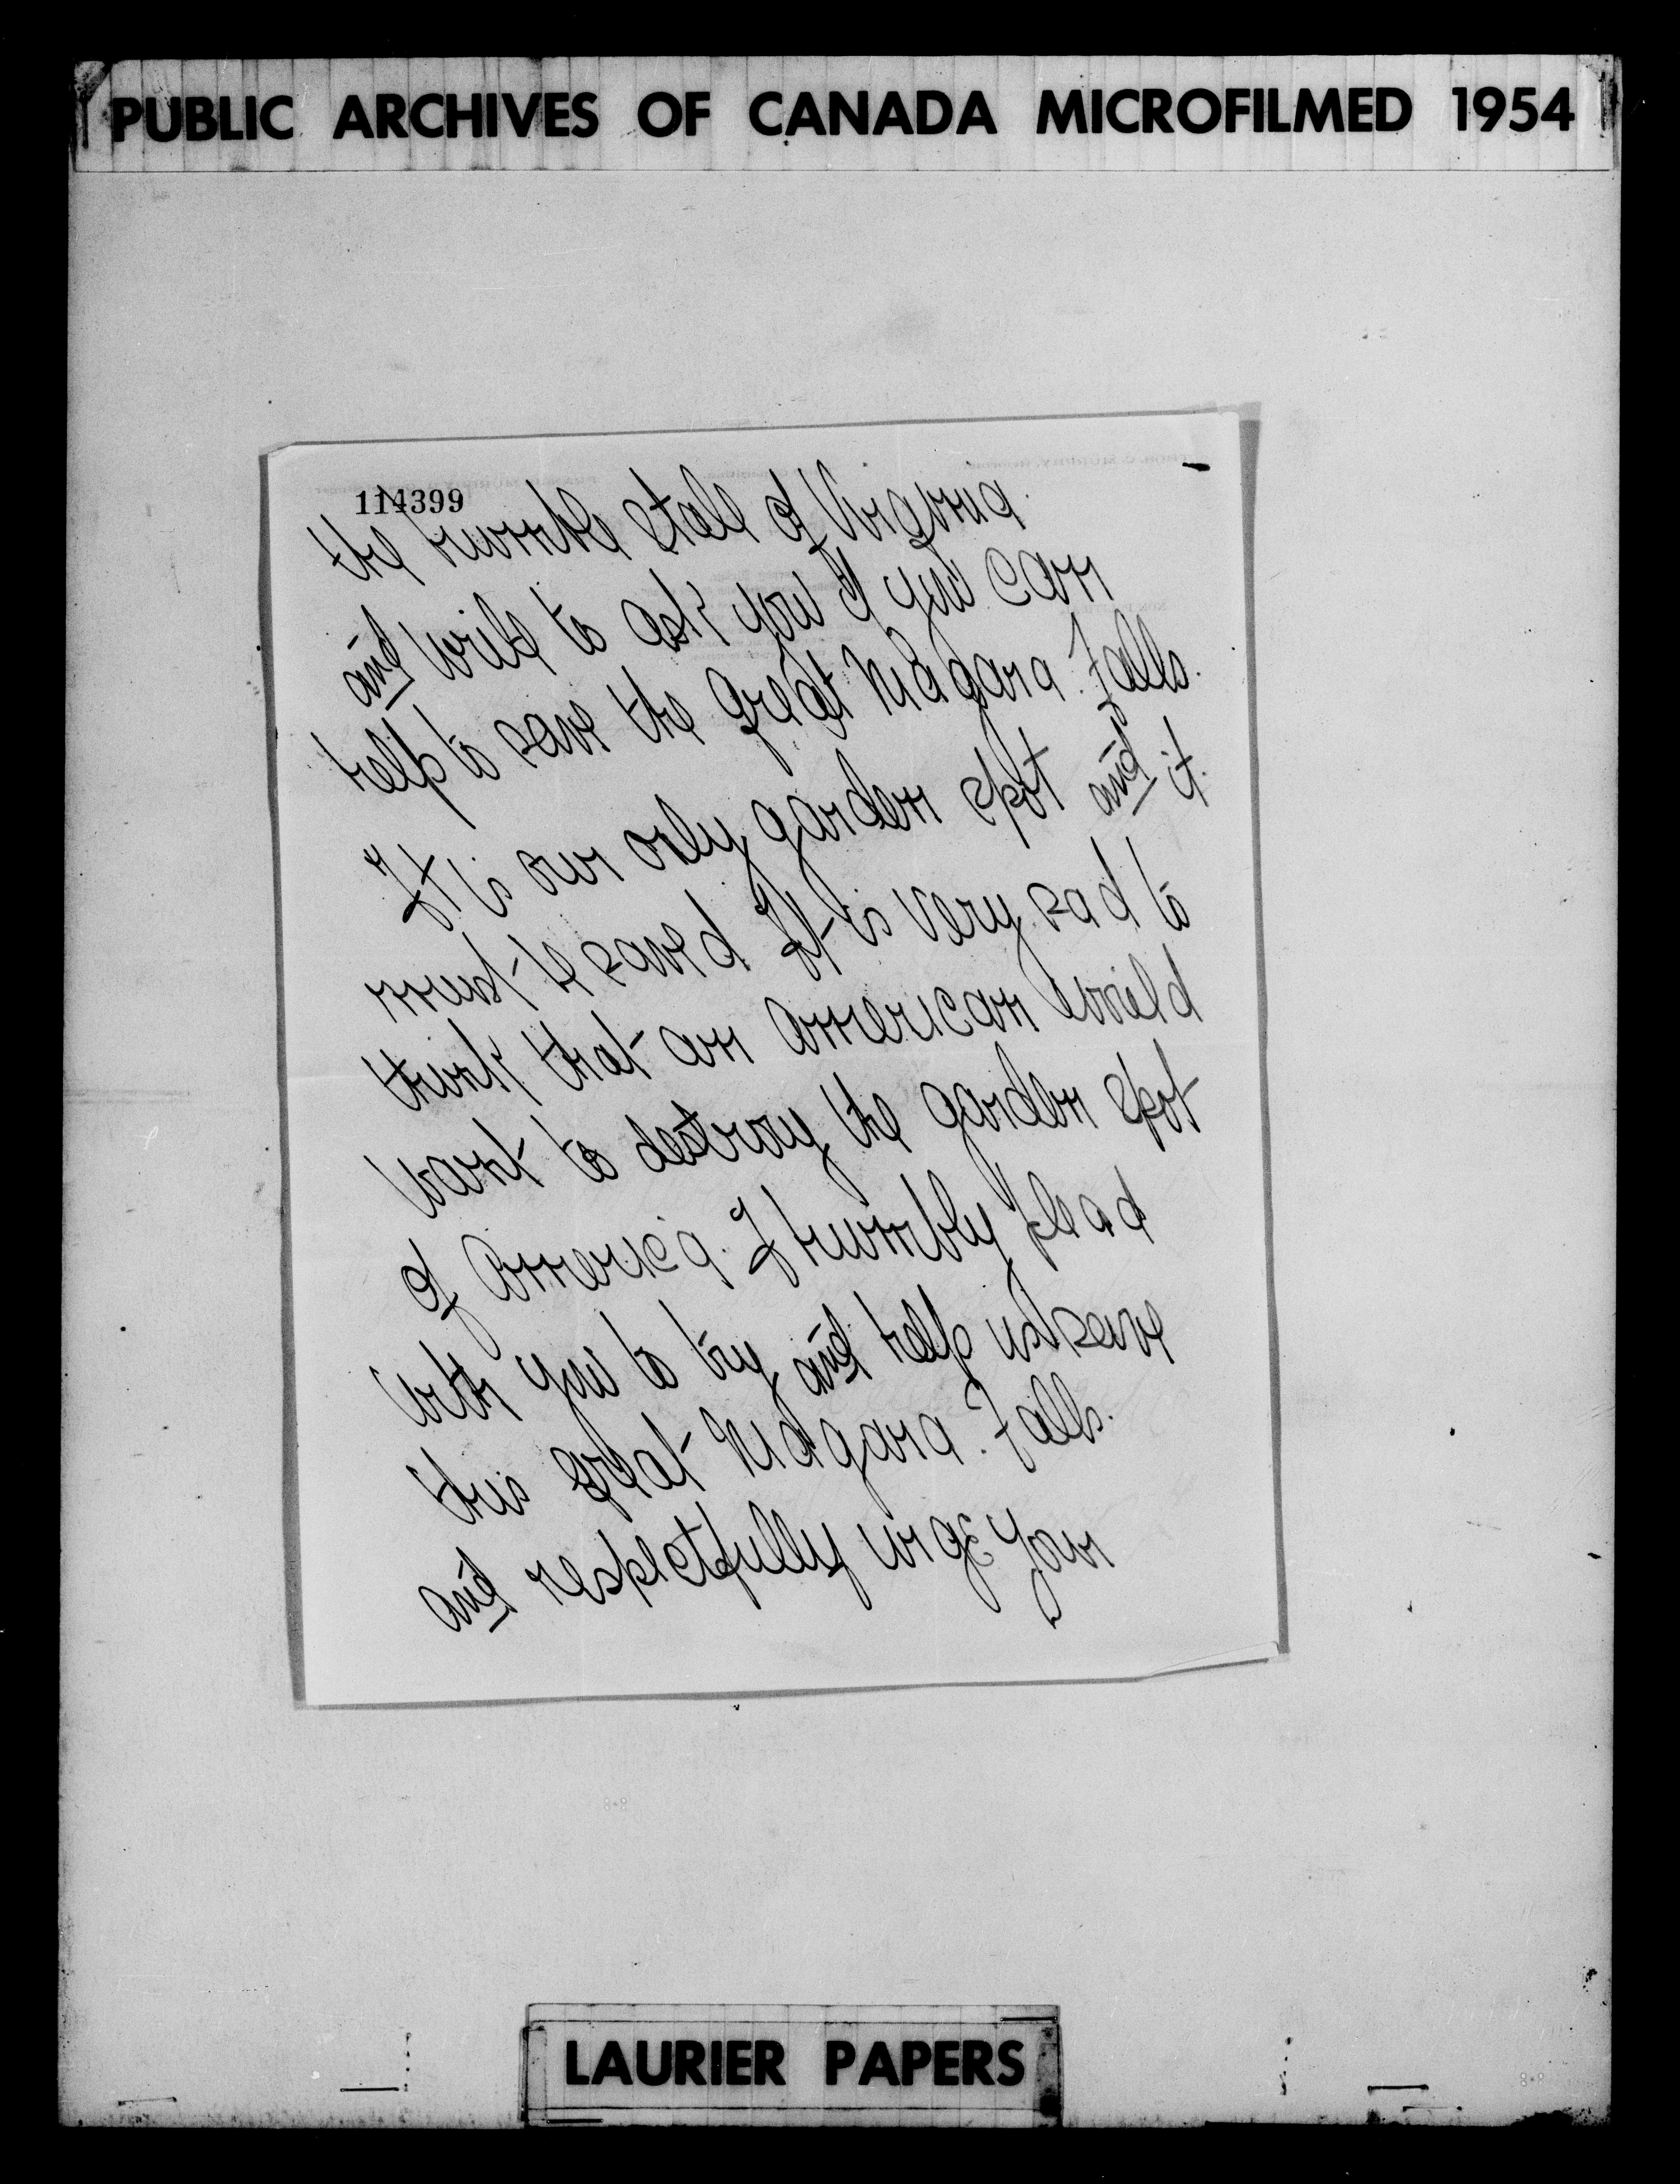 PUBLIC ARCHIVES OF CANADA MICROFILMED 1954
114399
the humble state of Virginia.
and write to ask you if you can
help to save the great Niagara Falls.
It is our only garden spot and it
must be saved It is very sad to
think that an American would
want to destroy the garden spot
of America. I humbly plead
with you to try and help us save
this great Niagara Falls.
and respectfully urge your
LAURIER PAPERS